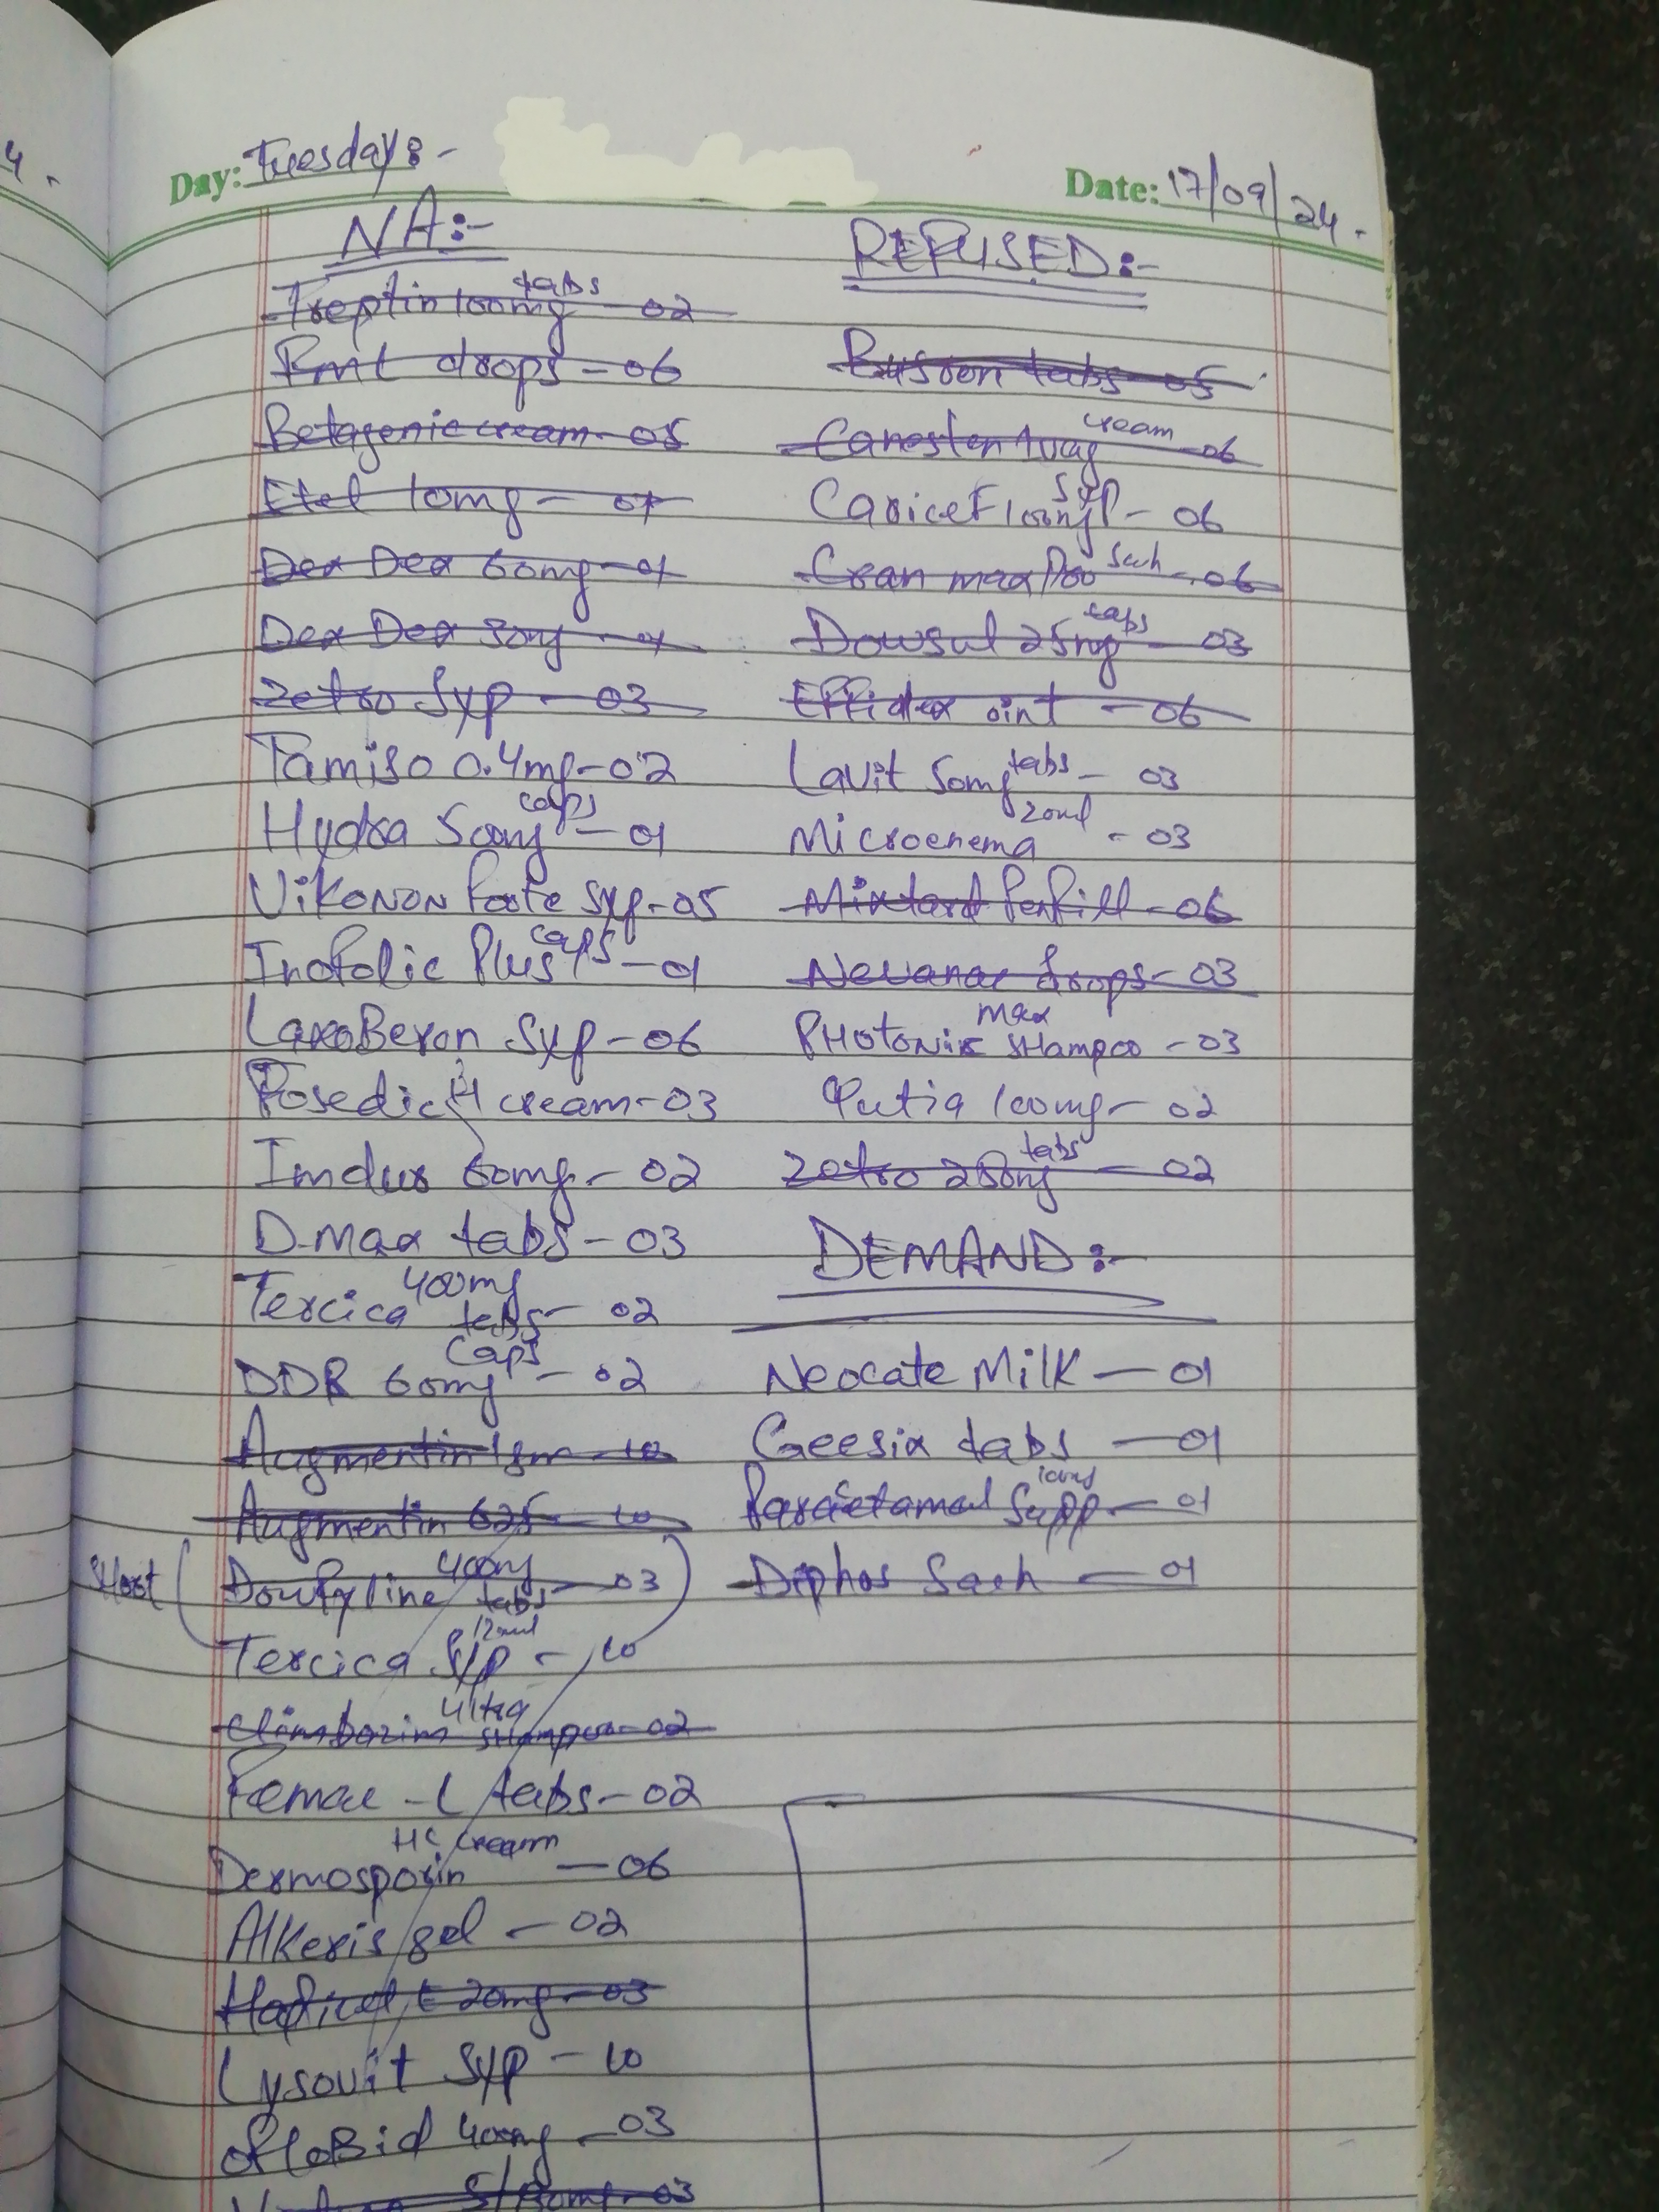 4.
Day: Tuesday:-
Date: 17/09/24.
NA:-
Treptin 100mg tabs - 02
Pmt drops - 06
Betagenic cream - 05
Etel 10mg - 01
Dex Dex 60mg - 01
Dex Dex 30mg - 01
Zetro Syp - 03
Tamiso 0.4mg - 02
Hydra 500mg caps - 01
Vikonon Forte Syp - 05
Inofolic Plus caps - 01
LaxoBeron Syp - 06
Fosedic H cream - 03
Imdur 60mg - 02
D-max tabs - 03
Tercica 400mg tabs - 02
DDR 60mg Caps - 02
Augmentin 1gm - 10
Augmentin 625 - 10
Short
Doufyline 400mg tabs - 03
Tercica Syp 12ml - 10
Climbazim Ultra Shampoo - 02
Femac - L tabs - 02
Dermosporin HC Cream - 06
Alkeris gel - 02
20mg - 03
Lysovit Syp - 10
ofloBid 400mg - 03
- 03
REFUSED:-
tabs - 05
Canesten cream - 06
Caricef 100mg Syp - 06
Cran max Sach - 06
Dowsul 25mg caps - 03
Effidex oint - 06
Lavit 50mg tabs - 03
Microenema 20ml - 03
Mixtard Penfill - 06
Nevanac drops - 03
Photonix max Shampoo - 03
Qutia 100mg - 02
Zetro 250mg tabs - 02
DEMAND:-
Neocate Milk - 01
Geesix tabs - 01
Paracetamol Supp - 01
Diphos Sach - 01